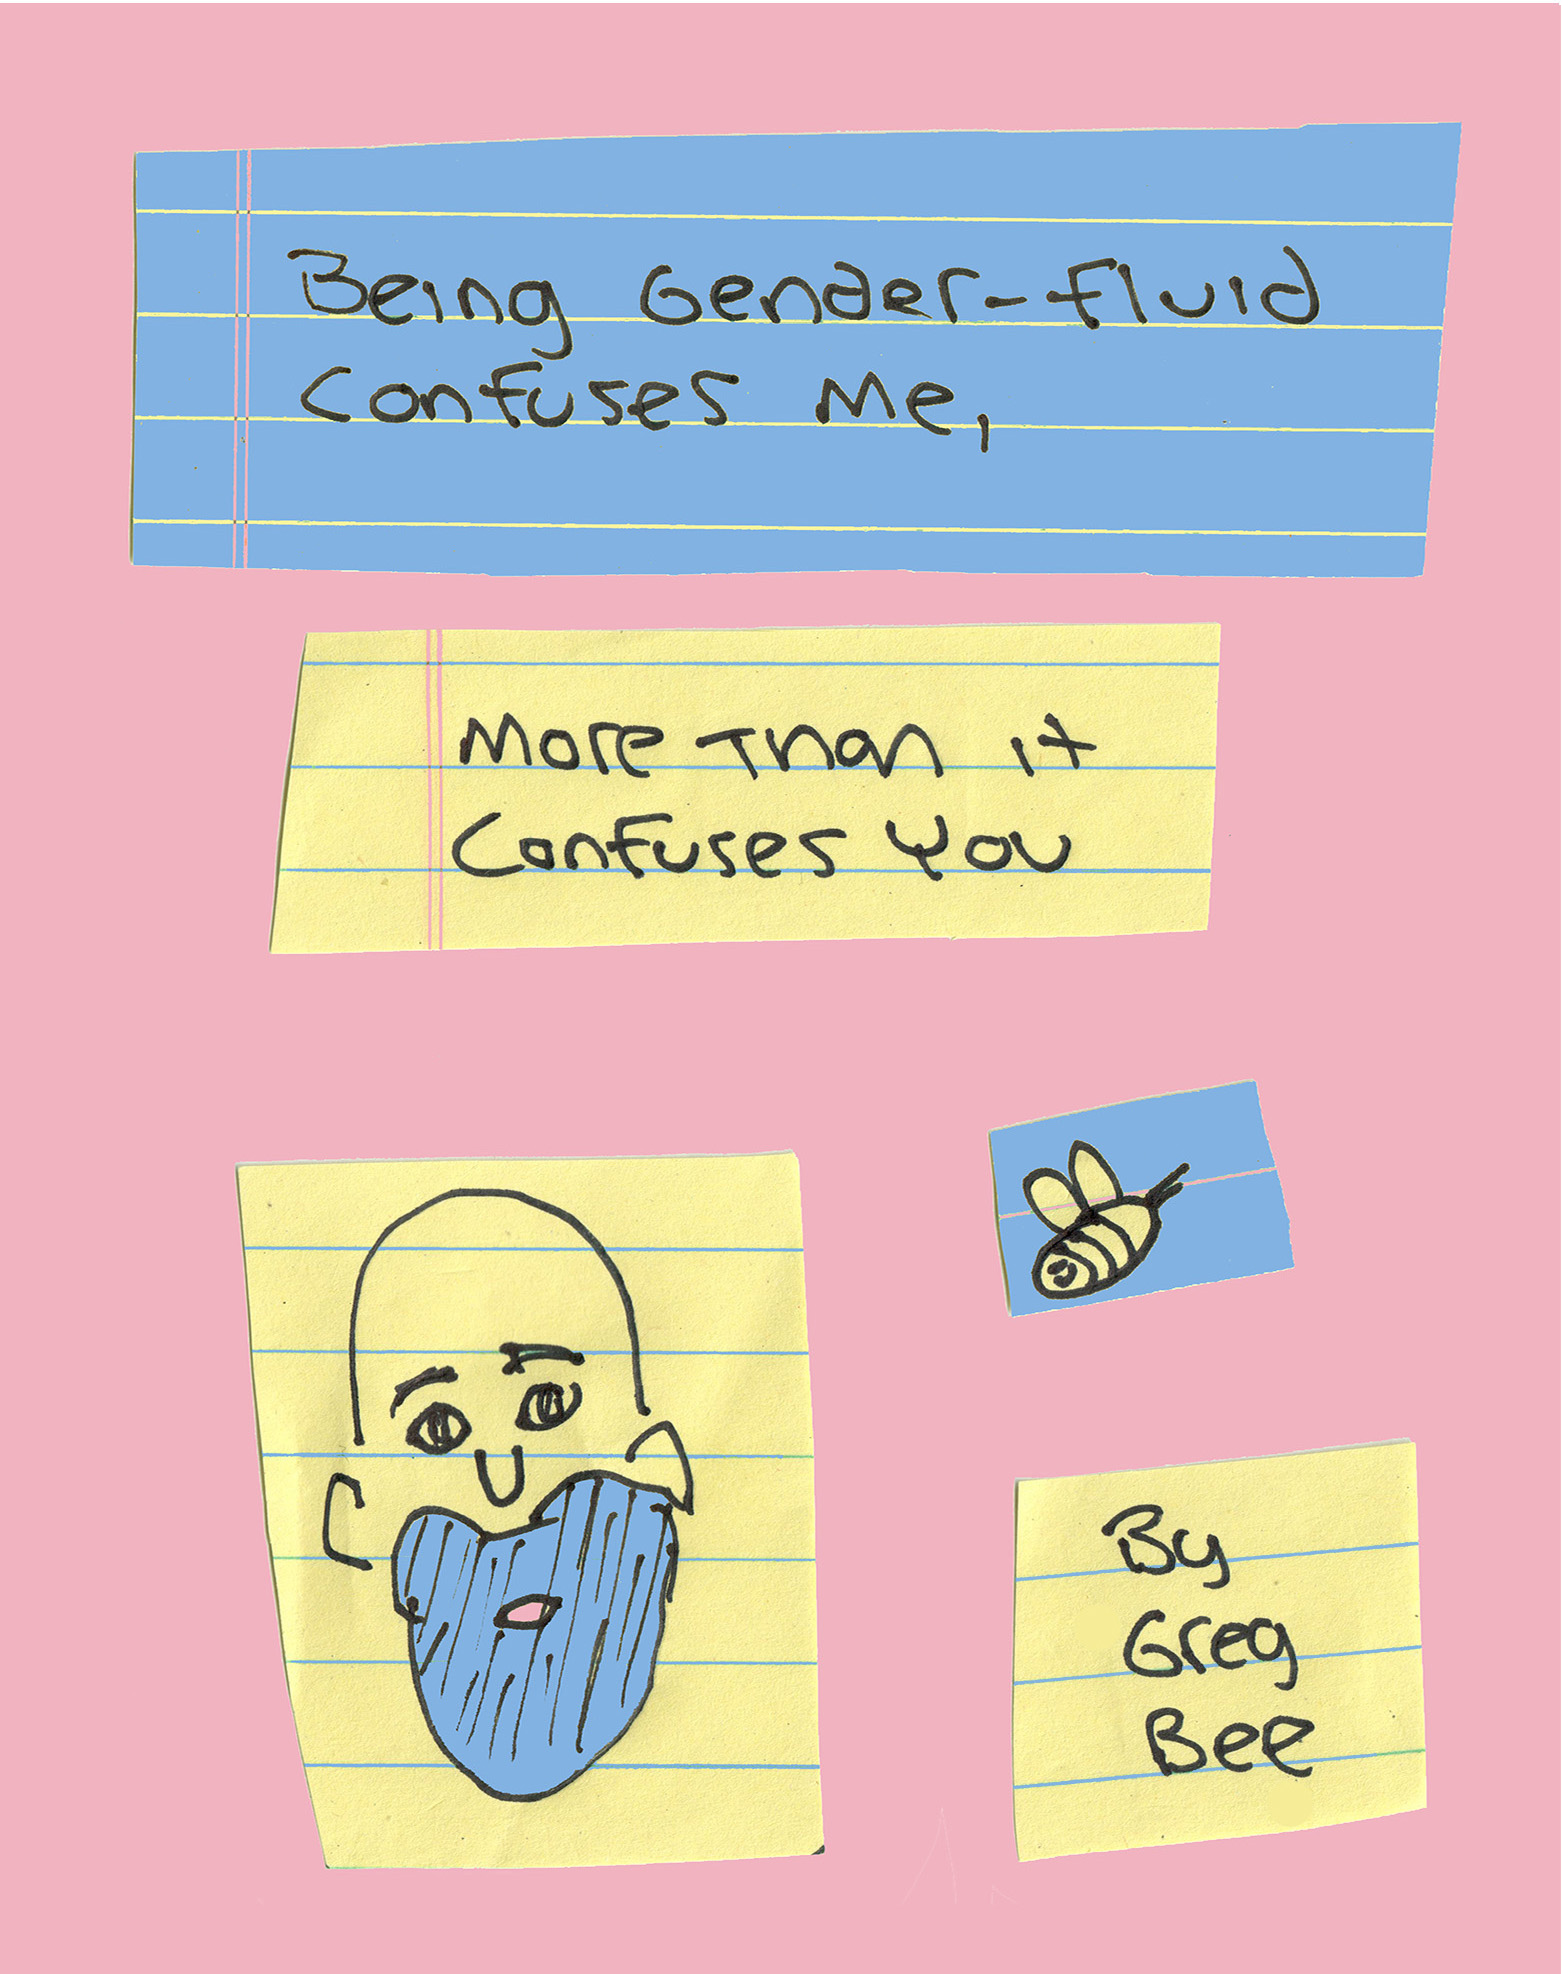 Being Gender-Fluid
Confuses Me,
More Than it
Confuses You
By
Greg
Bee